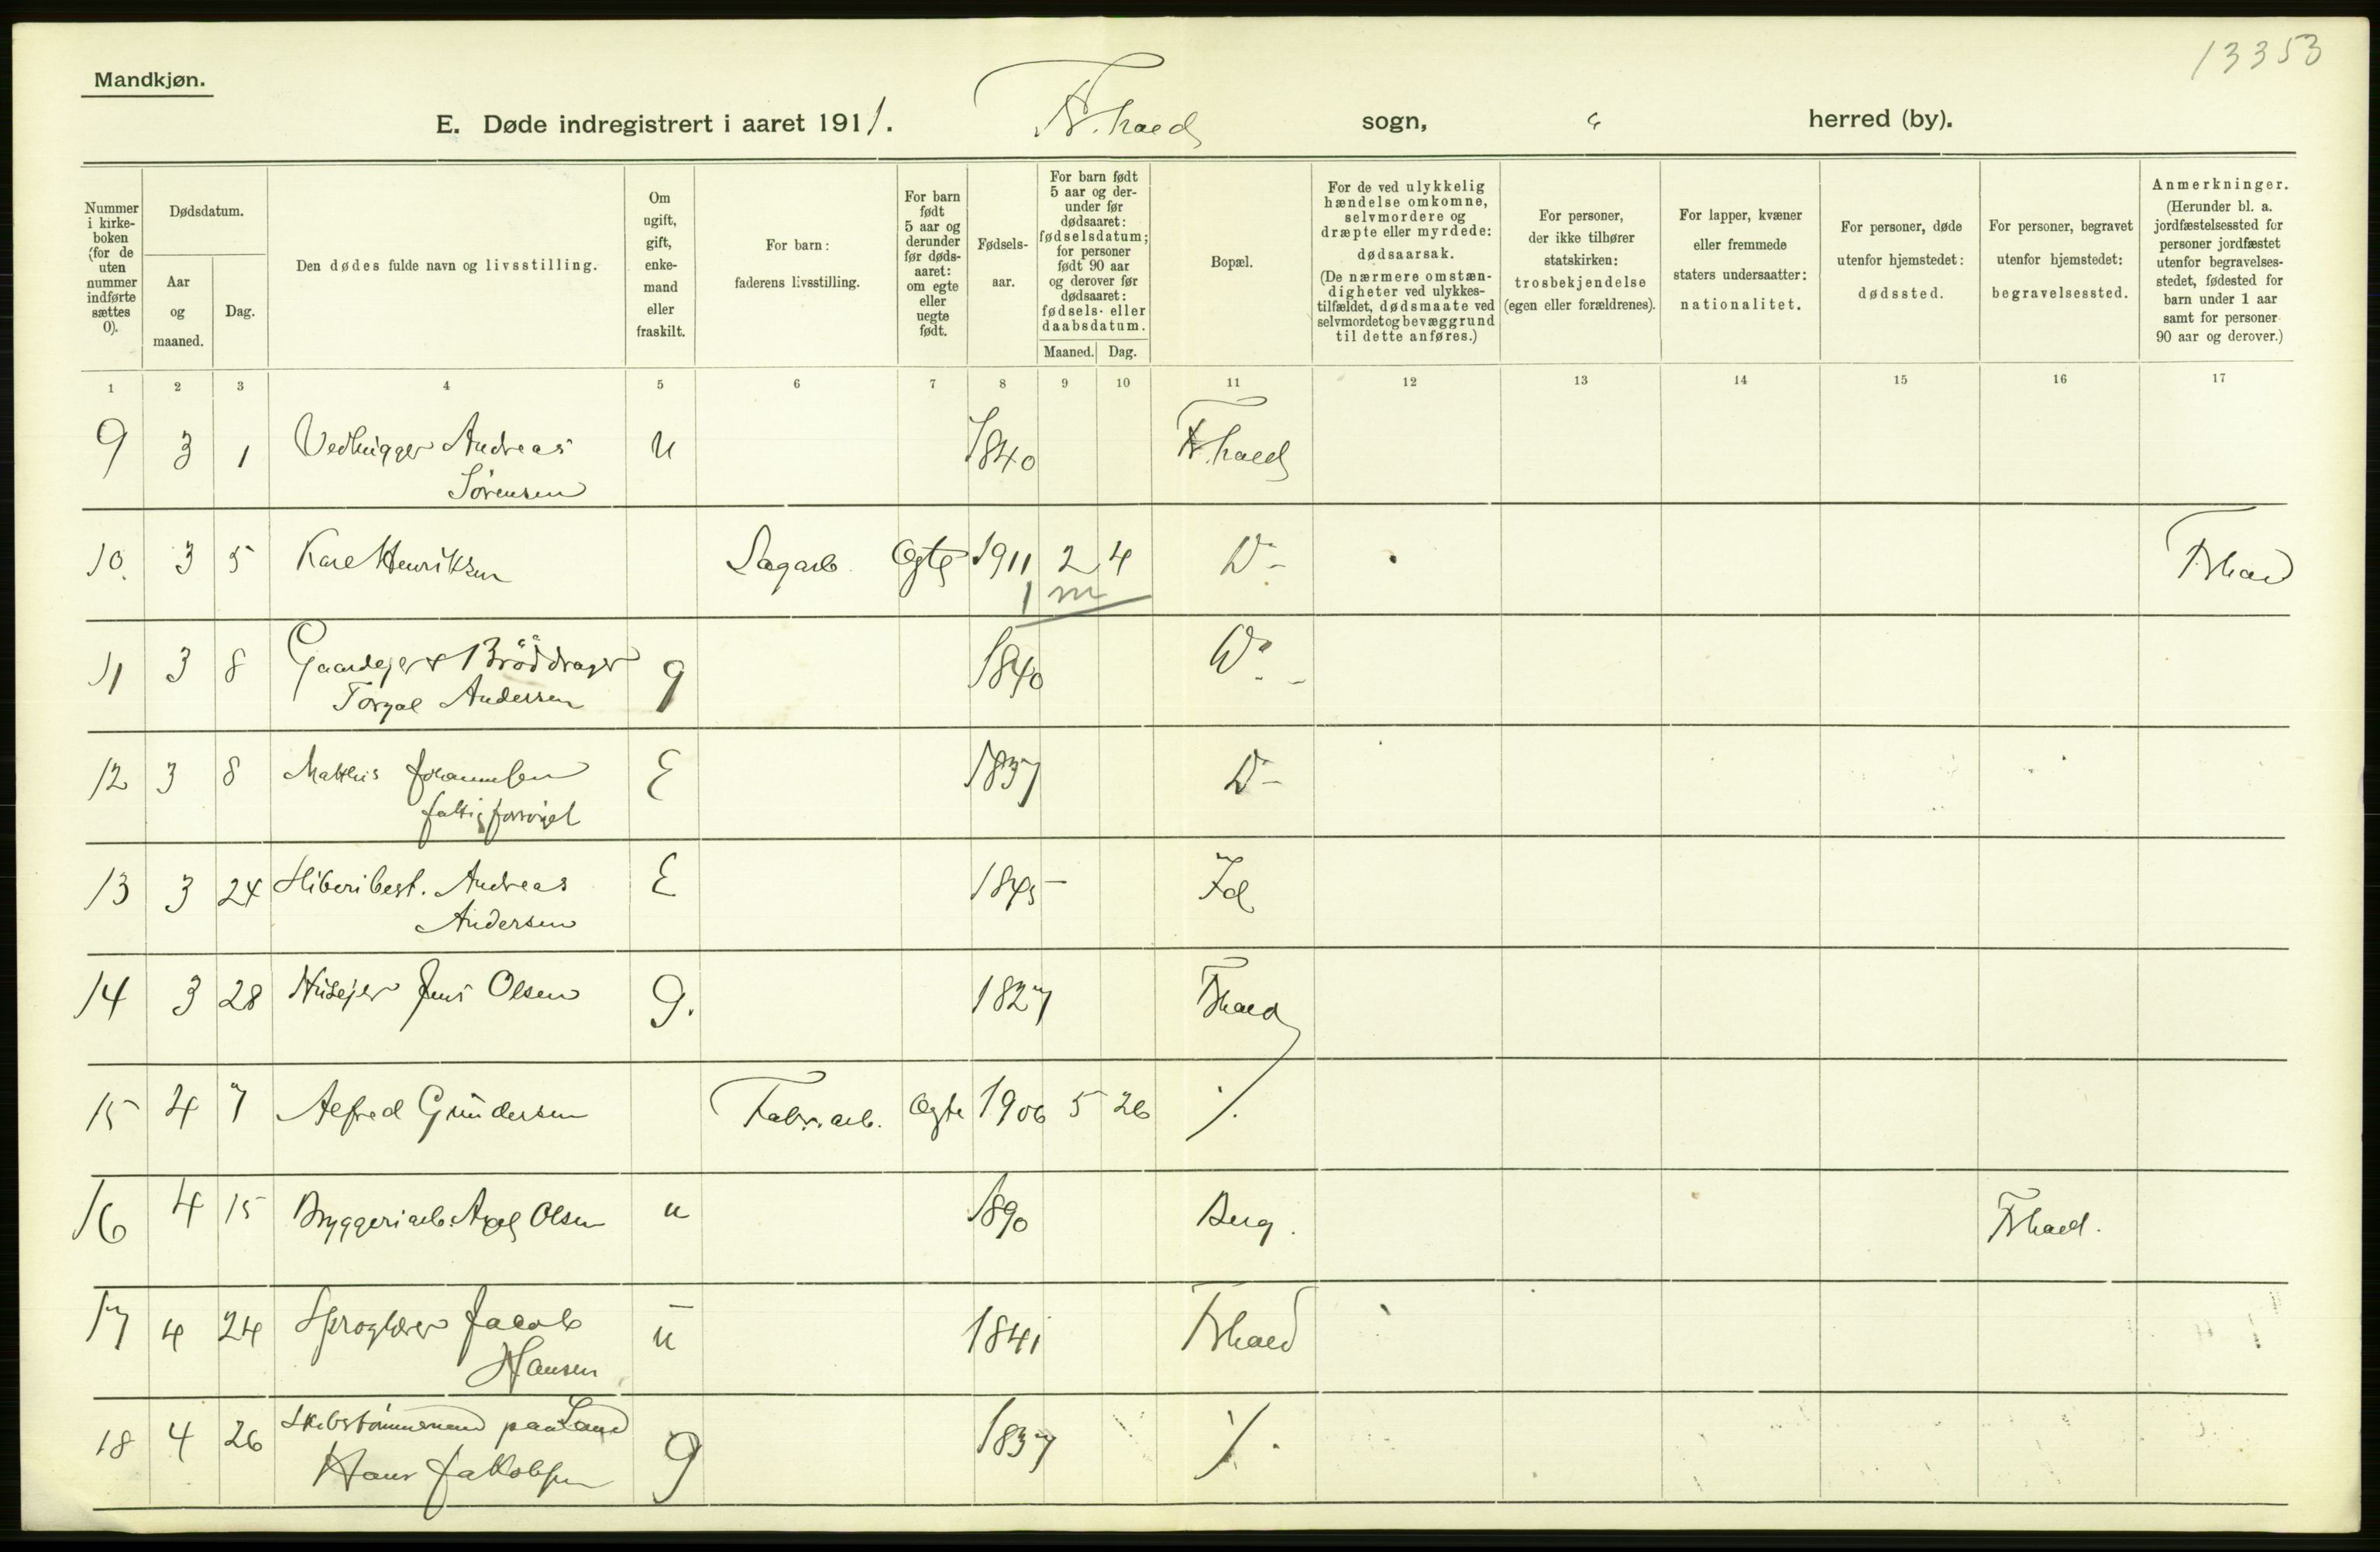 13353
Mandkjøn.
E. Døde indregistrert i aaret 1911. Fr.hald sogn, " herred (by).
Nummer i kirkeboken (for de uten nummer indførte sættes 0).
Dødsdatum.
Aar og maaned.
Dag.
Den dødes fulde navn og livsstilling.
Om ugift, gift, enkemand eller fraskilt.
For barn: faderens livsstilling.
For barn født 5 aar og derunder før dødsaaret: om egte eller uegte født.
Fødselsaar.
For barn født 5 aar og derunder før dødsaaret: fødselsdatum; for personer født 90 aar og derover før dødsaaret: fødsels- eller daabsdatum.
Maaned. Dag.
Bopæl.
For de ved ulykkelig hændelse omkomne, selvmordere og dræpte eller myrdede: dødsaarsak. (De nærmere omstændigheter ved ulykkestilfældet, dødsmaate ved selvmordet og bevæggrund til dette anføres.)
For personer, der ikke tilhører statskirken: trosbekjendelse (egen eller forældrenes).
For lapper, kvæner eller fremmede staters undersaatter: nationalitet.
For personer, døde utenfor hjemstedet: dødssted.
For personer, begravet utenfor hjemstedet: begravelsessted.
Anmerkninger. (Herunder bl. a. jordfæstelsessted for personer jordfæstet utenfor begravelsesstedet, fødested for barn under 1 aar samt for personer 90 aar og derover.)
1 2 3 4 5 6 7 8 9 10 11 12 13 14 15 16 17
9 3 1 Vedhugger Andreas u 1840 Fr.hald
Sørensen
10. 3 5 Karl Henriksen Sagarb. Egte 1911 2 4 Do - Frhald
1 m
11 3 8 Gaardejer & Brøddrager g 1840 Do -
Andersen
12 3 8 Mathis Johannesen E 1837 Do -
fattigforsørget
13 3 24 Andreas E 1845 Id
Andersen
14 3 28 Husejer Jens Olsen g. 1827 Frhald
15 4 7 Alfred Gundersen Fabr.arb. Egte 1906 5 26 ⁒
16 4 15 Bryggeriarb. Axel Olsen u 1890 Berg. Frhald.
17 4 24 Sproglærer Jacob u 1841 Frhald
Hansen
18 4 26 Skibstømmermand paa Land g 1837 ⁒
Hans Jakobsen